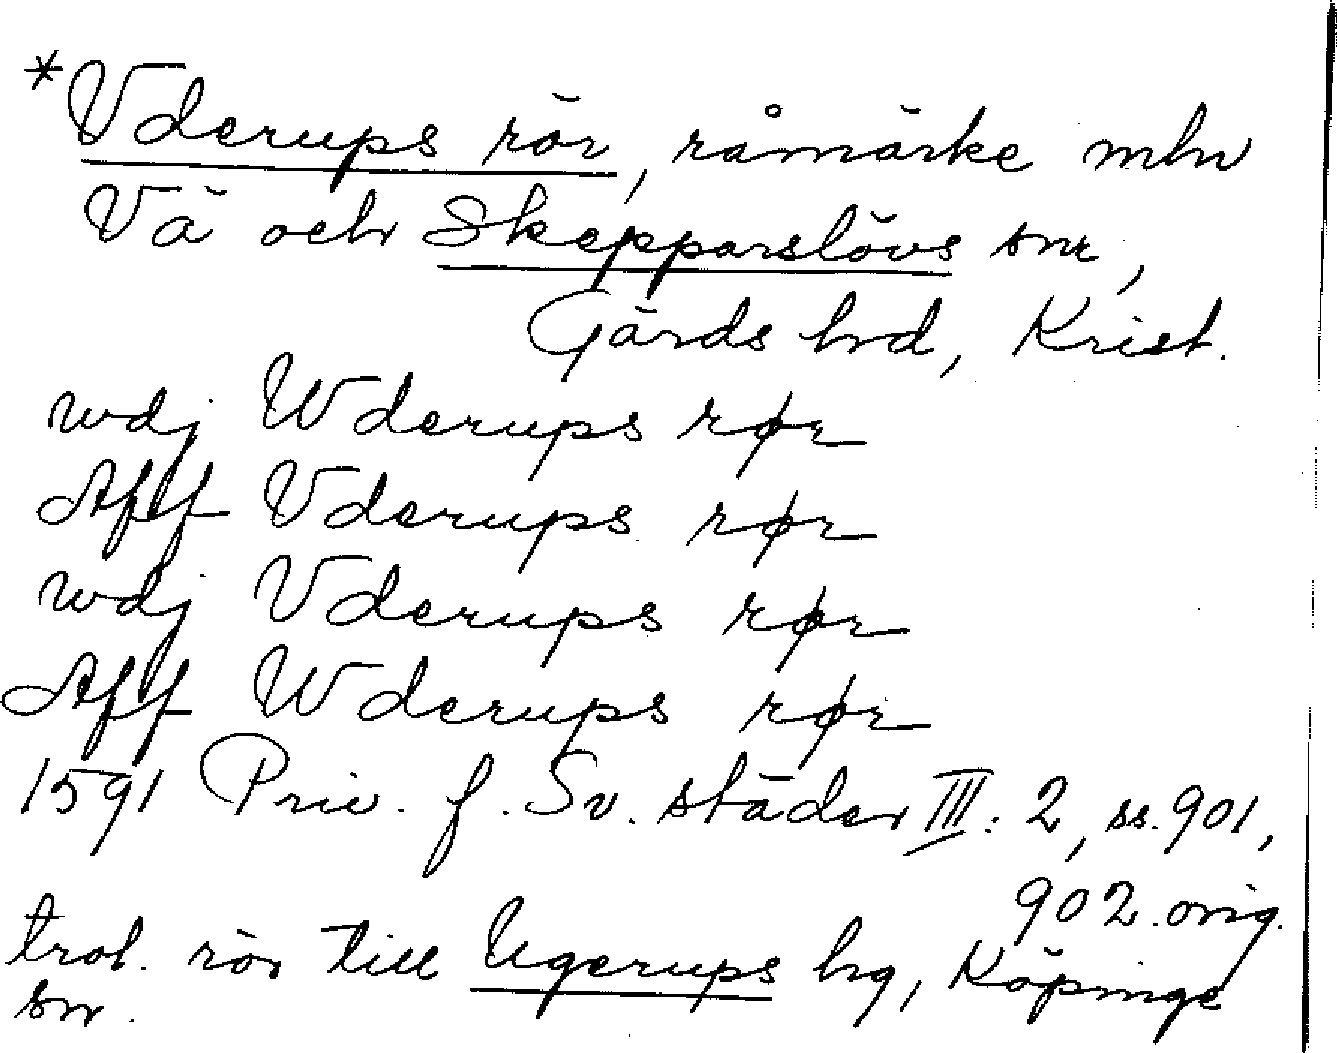 *Vderups rör, råmärke mln
Vä och Skepparslövs snr,
Gärds hd, Krist.
wdj Wderups rør
Aff Vderups rør
wdj Vderups rør
Aff Wderups rør
1591 Priv. f. Sv. städer III: 2, ss. 901,
902. orig.
trol. rör till Ugerups hg, Köpinge
sn.